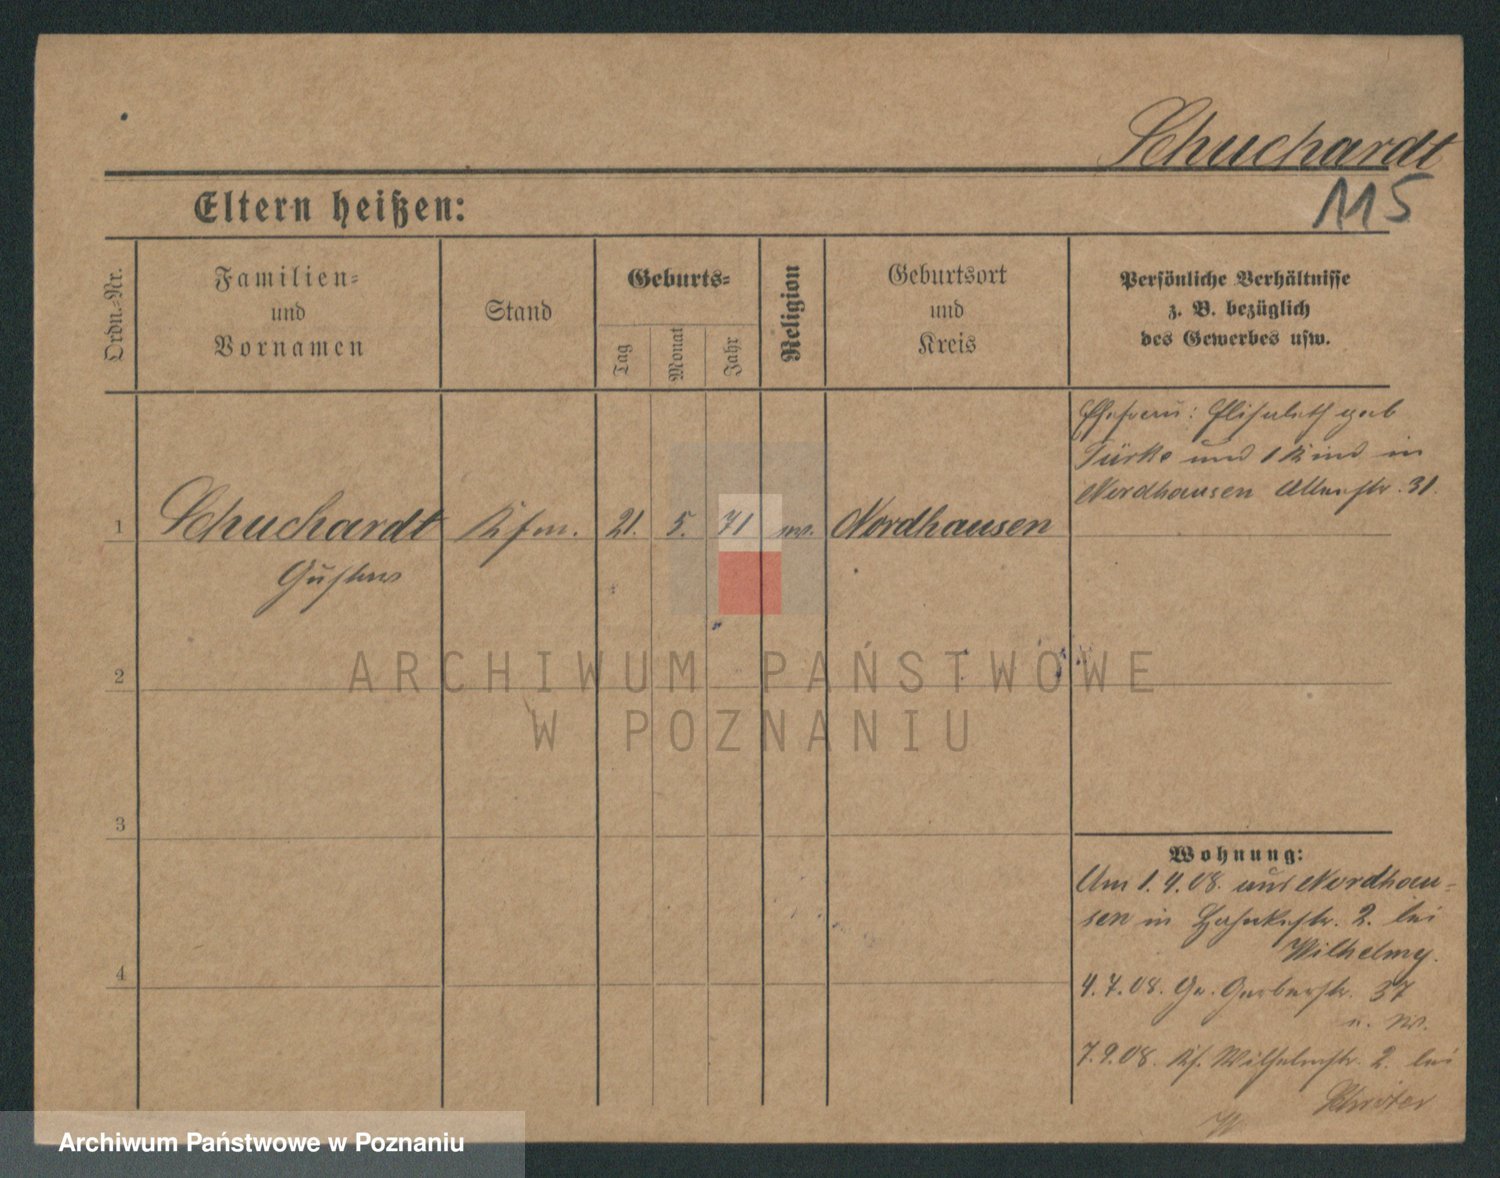 Schuchardt
115
Eltern heißen:
Ordn.-Nr.
Familien-
und
Vornamen
Stand
Geburts-
Tag
Monat
Jahr
Religion
Geburtsort
und
Kreis
Persönliche Verhältnisse
z. B. bezüglich
des Gewerbes usw.
1
Schuchardt
Gustav
Kfm.
21.
5.
71
Nordhausen
Ehefrau: Elisabeth geb
Türke und 1 Kind in
Nordhausen 31.
2
3
4
Wohnung:
Am 1.4.08. aus Nordhau-
sen in 2. bei
Wilhelmy.
4.7.08. Gr. Gerberstr. 37
7.9.08. Wilhelmstr. 2. bei
Schröter
ARCHIWUM PAŃSTWOWE
W POZNANIU
Archiwum Państwowe w Poznaniu